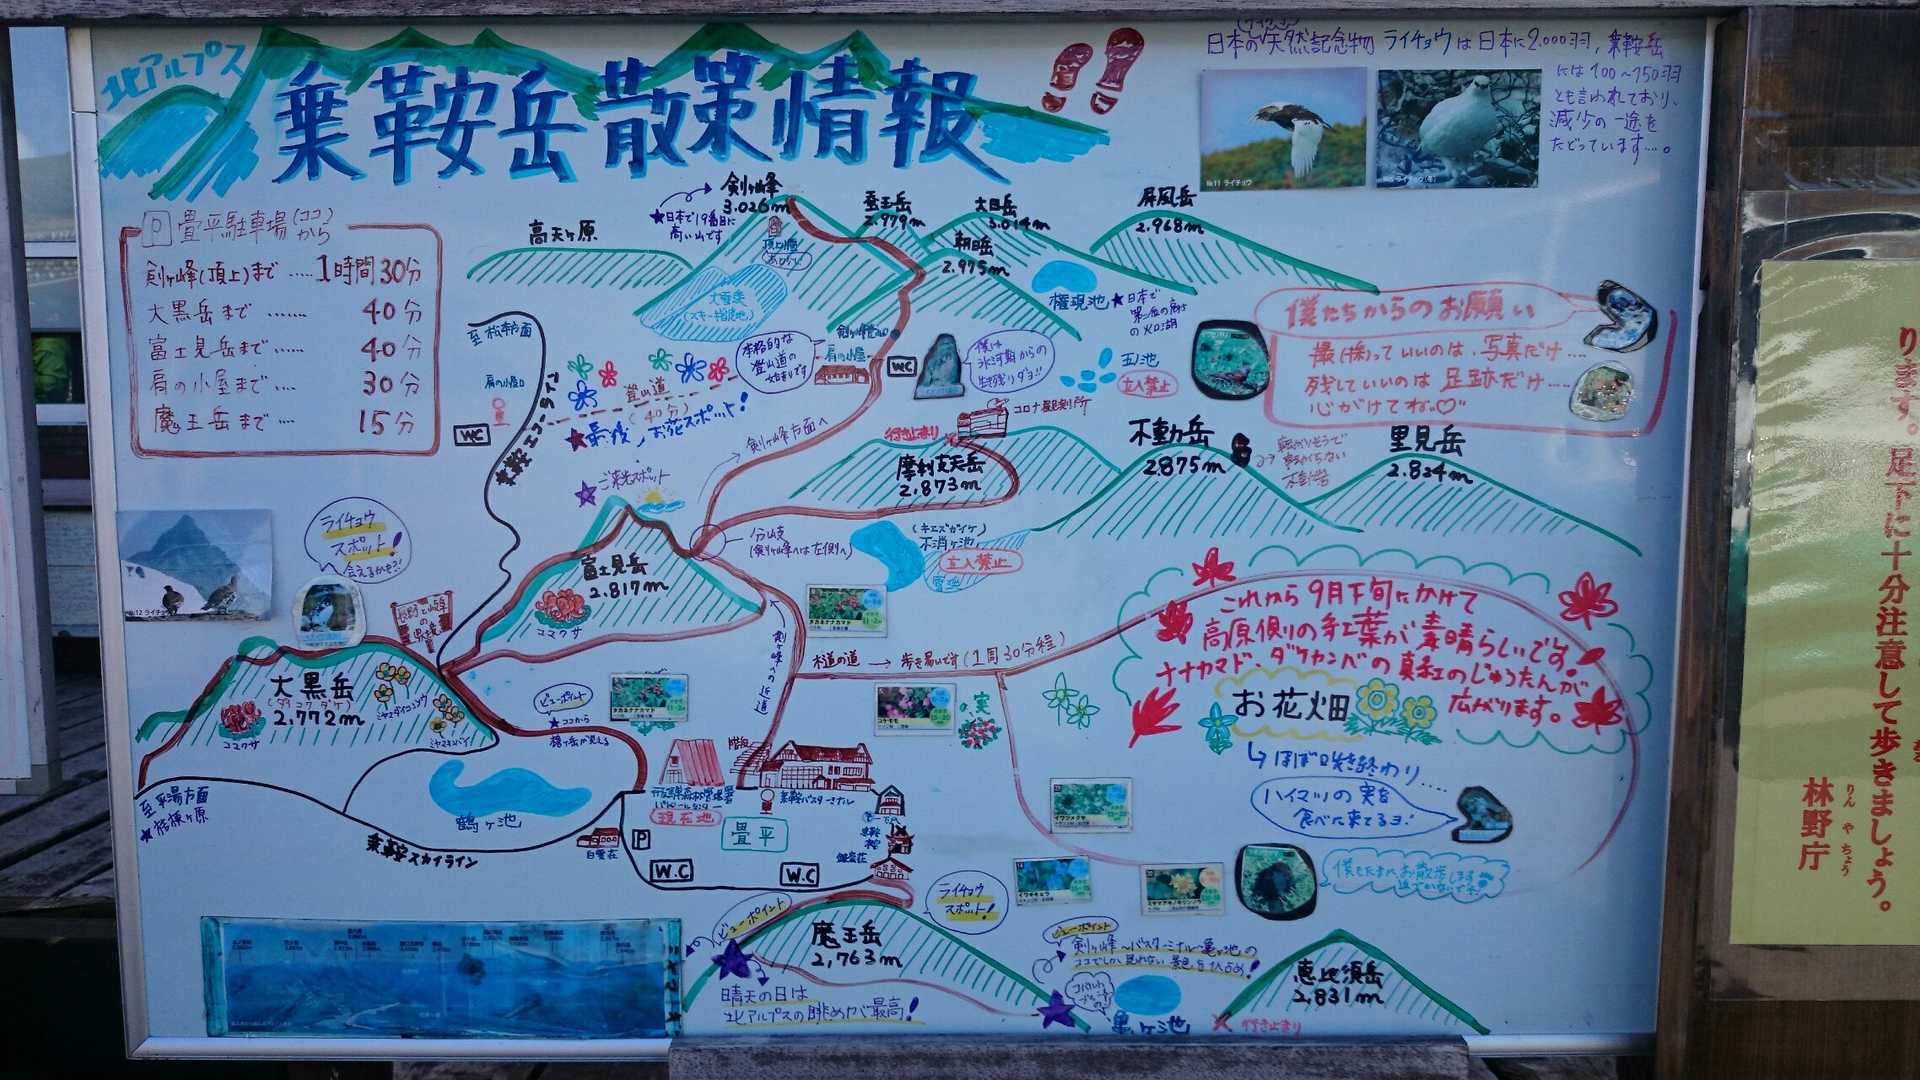 北アルプス
乗鞍岳散策情報
日本の天然記念物 ライチョウは日本に2.000羽,乗鞍岳
には100~150羽
とも言われており、
減少の一途を
たどっています…。
No.11 ライチョウ
P 畳平駐車場(ココから)
剣ヶ峰(頂上)まで……1時間30分
大黒岳まで……40分
富士見岳まで……40分
肩の小屋まで……30分
魔王岳まで……15分
高天ヶ原
剣ヶ峰
3.026m
★日本で19番目に
高い山です
頂上小屋
蚕玉岳
2.979m
大日岳
3.014m
朝日岳
2.975m
屏風岳
2.968m
大雪渓
権現池
★日本で
第二位の高さ
の火口湖
至松本方面
肩の小屋口
WC
乗鞍エコーライン
登山道
(40分)
★最後ノお花スポット!
本格的な
登山道の
始まりです
肩の小屋
WC
僕は
氷河期からの
生き残りダョ!!
五ノ池
立入禁止
コロナ観測所
行き止まり
僕たちからのお願い
撮(採)っていいのは、写真だけ…
残していいのは 足跡だけ…
心がけてね♡
剣ヶ峰方面へ
★ご来光スポット
摩利支天岳
2.873m
不動岳
2.875m
里見岳
2.834m
分岐
(剣ヶ峰へは左側へ)
(キエズガイケ)
不消ヶ池
立入禁止
雪渓
ライチョウ
スポット!
会えるかも?!
No.12 ライチョウ
長野と岐阜
の
県境
富士見岳
2.817m
コマクサ
タカネナナカマド
剣ヶ峰への近道
木道の道 → 歩き易いです(1周30分程)
これから9月下旬にかけて
高原側の紅葉が素晴らしいです!
ナナカマド、ダケカンバの真紅のじゅうたんが
広がります。
お花畑
↳ほぼ咲き終わり….
ハイマツの実を
食べに来てるヨ!
大黒岳
(ダイコクダケ)
2.772m
コマクサ
ミヤマダイコンソウ
ミヤマキンバイ
ビューポイント
★ココから
槍ヶ岳が見える
タカネナナカマド
コケモモ
の実
階段
現在地
乗鞍バスターミナル
畳平
至平湯方面
★桔梗ヶ原
鶴ヶ池
乗鞍スカイライン
白雲荘
P
W.C
W.C
銀嶺荘
イワツメクサ
イワギキョウ
ミヤマアキノキリンソウ
ライチョウ
スポット!
ビューポイント
魔王岳
2,763m
晴天の日は
北アルプスの眺めが最高!
ビューポイント
剣ヶ峰~バスターミナル~亀ヶ池の
ココでしか見れない景色をひとりじめ!
コバルト
ブルーの
亀ヶ池
恵比須岳
2,831m
×行き止まり
ります。足下に十分注意して歩きましょう。
林野庁
りんやちょう